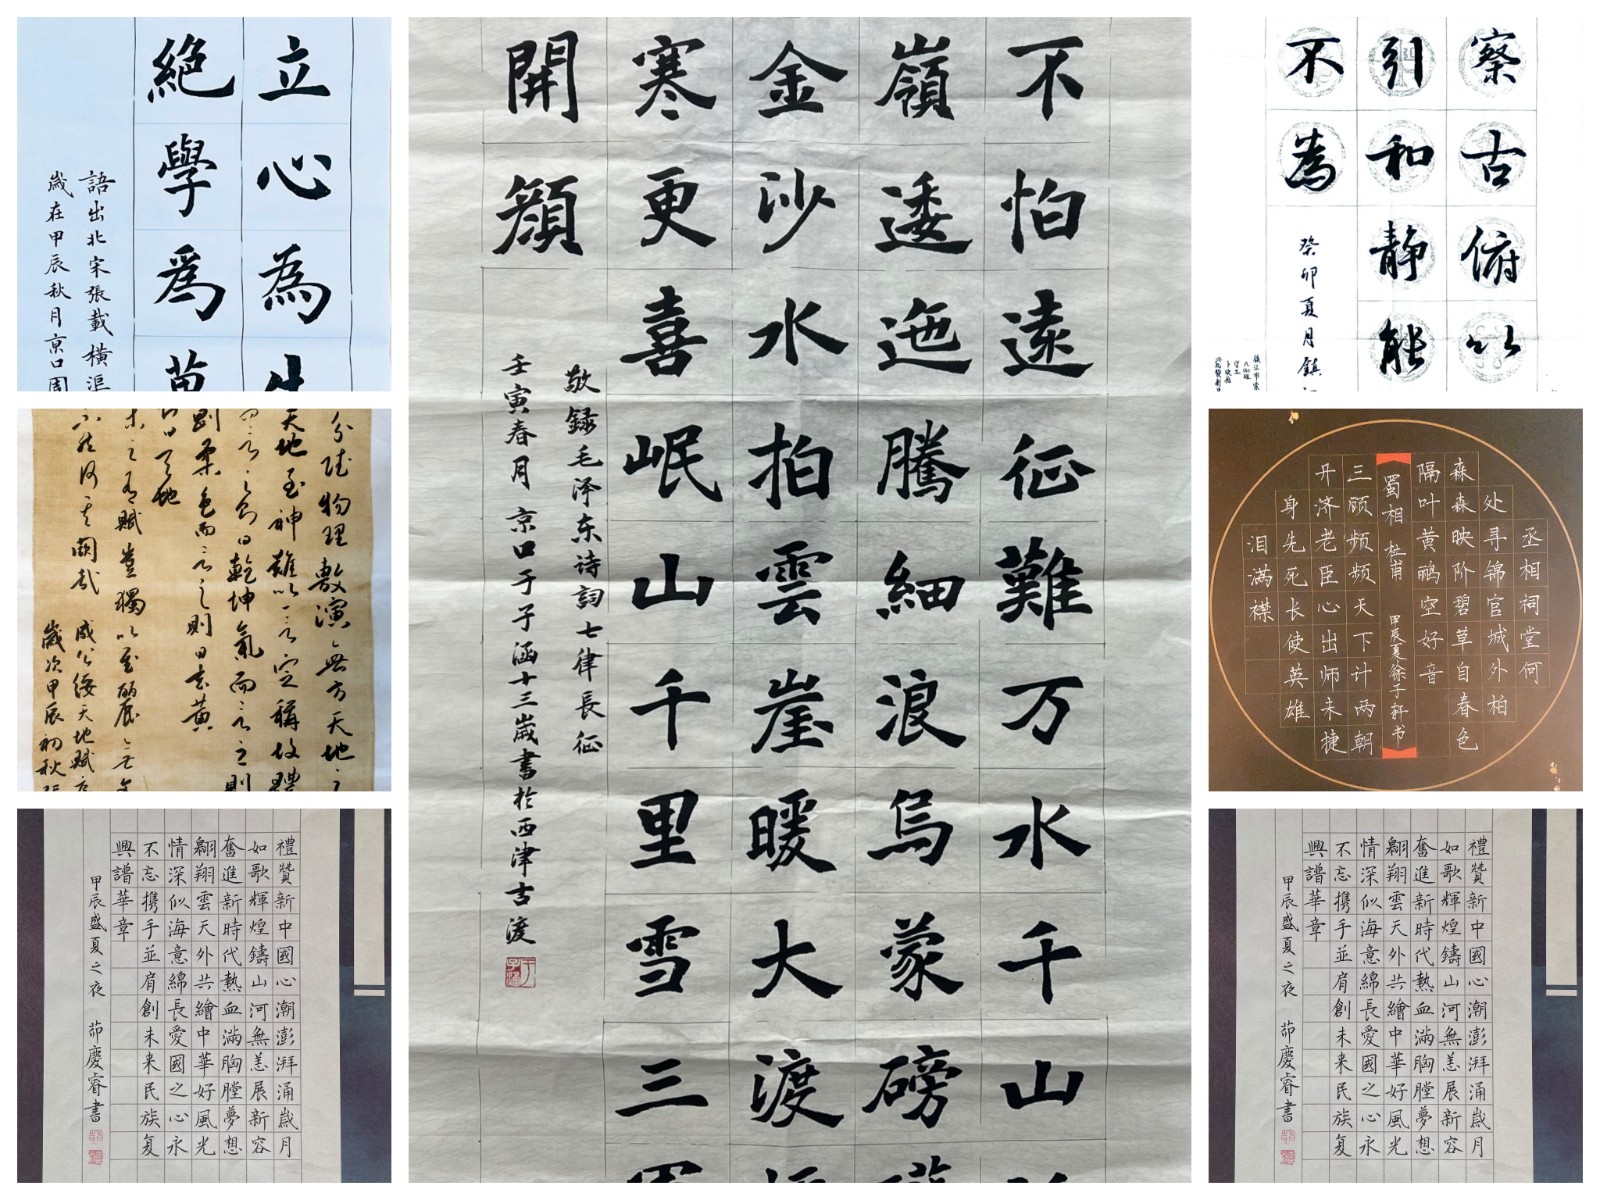 立心為
絕學爲
語出北宋張載橫渠
歲在甲辰秋月京口周
物理敷演無方天地之
天地至神難以一言定稱故體
言之則曰乾坤氣而言之則
剛柔色而言之則曰玄黄
曰天地
未之有賦豈獨以至麗無
不然何其闕哉
咸公綏天地賦
歲次甲辰初秋
禮贊新中國心潮澎湃涌歲月
如歌輝煌鑄山河無恙展新容
奮進新時代熱血滿胸膛夢想
翱翔雲天外共繪中華好風光
情深似海意綿長愛國之心永
不忘携手並肩創未来民族复
興譜華章
甲辰盛夏之夜 茆慶睿書
不怕遠征難万水千山
嶺逶迤騰細浪烏蒙磅
金沙水拍雲崖暖大渡
寒更喜岷山千里雪三
開顔
敬録毛泽东诗詞七律長征
壬寅春月京口于子涵十三歲書於西津古渡
察古俯以
引和静能
不為
癸卯夏月鎮
丞相祠堂何
处寻锦官城外柏
森森映阶碧草自春色
隔叶黄鹂空好音
蜀相 杜甫 甲辰夏徐子轩书
三顾频频天下计两朝
开济老臣心出师未捷
身先死长使英雄
泪满襟
禮贊新中國心潮澎湃涌歲月
如歌輝煌鑄山河無恙展新容
奮進新時代熱血滿胸膛夢想
翱翔雲天外共繪中華好風光
情深似海意綿長愛國之心永
不忘携手並肩創未来民族复
興譜華章
甲辰盛夏之夜 茆慶睿書